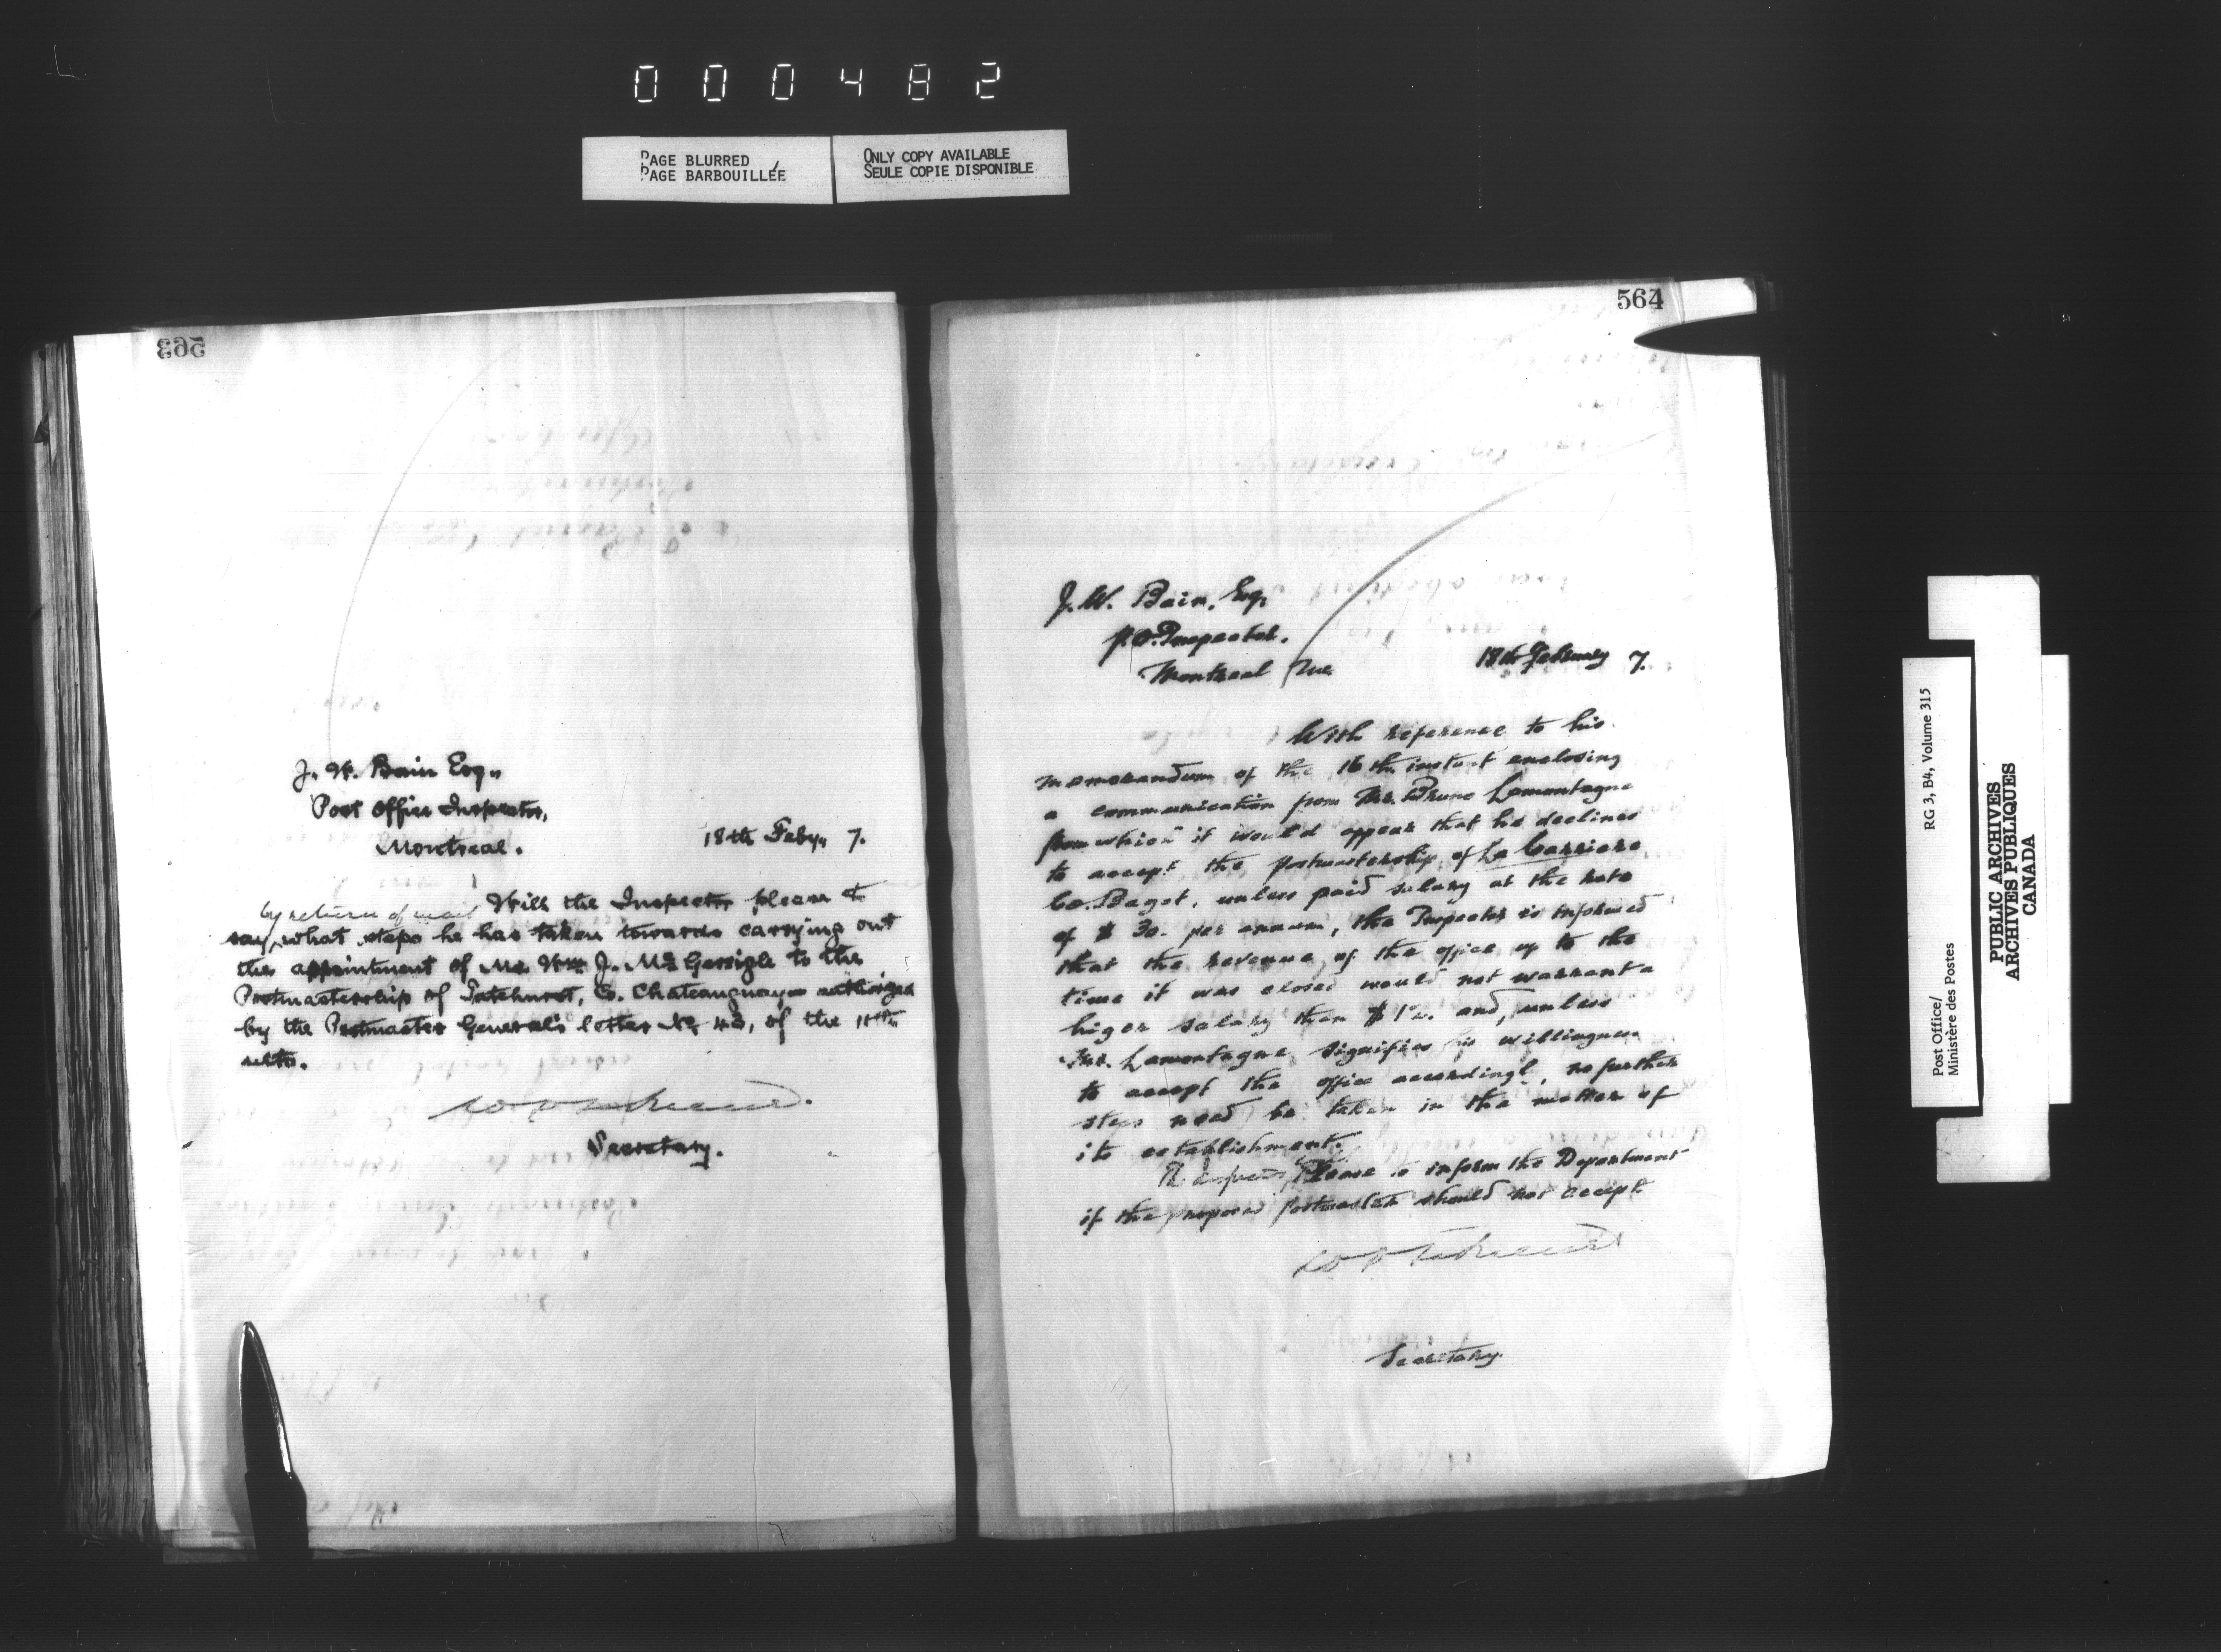 000482
PAGE BLURRED
PAGE BARBOUILLÉE
ONLY COPY AVAILABLE
SEULE COPIE DISPONIBLE
563
J. W. Bain Esq,,
Post Office Inspector,
Montreal.
18th Feby,, 7.
Will the Inspector please
by return of mail
say, what steps he has taken towards carrying out
the appointment of Mr. Wm J. McGerrigle to the
Postmastership of Tatehurst, Co. Chateauguay authorized
by the Postmaster General's letter No 43, of the 11th
ulto.
Secretary.
564
J. W. Bain, Esq,
P.O. Inspector.
Montreal Que
18th February 7.
With reference to his
memorandum of the 16th instant enclosing
a communication from Mr. Bruno Lamontagne
from which it would appear that he declines
to accept the postmastership of La Carriere
Co. Bagot, unless paid salary at the rate
of $ 30. per annum, the Inspector is informed
that the revenue of the office up to the
time it was closed would not warrant a
higer salary than $12. and, unless
Mr. Lamontagne signifies his willingness
to accept the office accordingly, no further
steps need be taken in the matter of
its establishment.
Please to inform the Department
if the proposed postmaster should not accept.
Secretary.
Post Office/
Ministère des Postes
RG 3, B4, Volume 315
PUBLIC ARCHIVES
ARCHIVES PUBLIQUES
CANADA